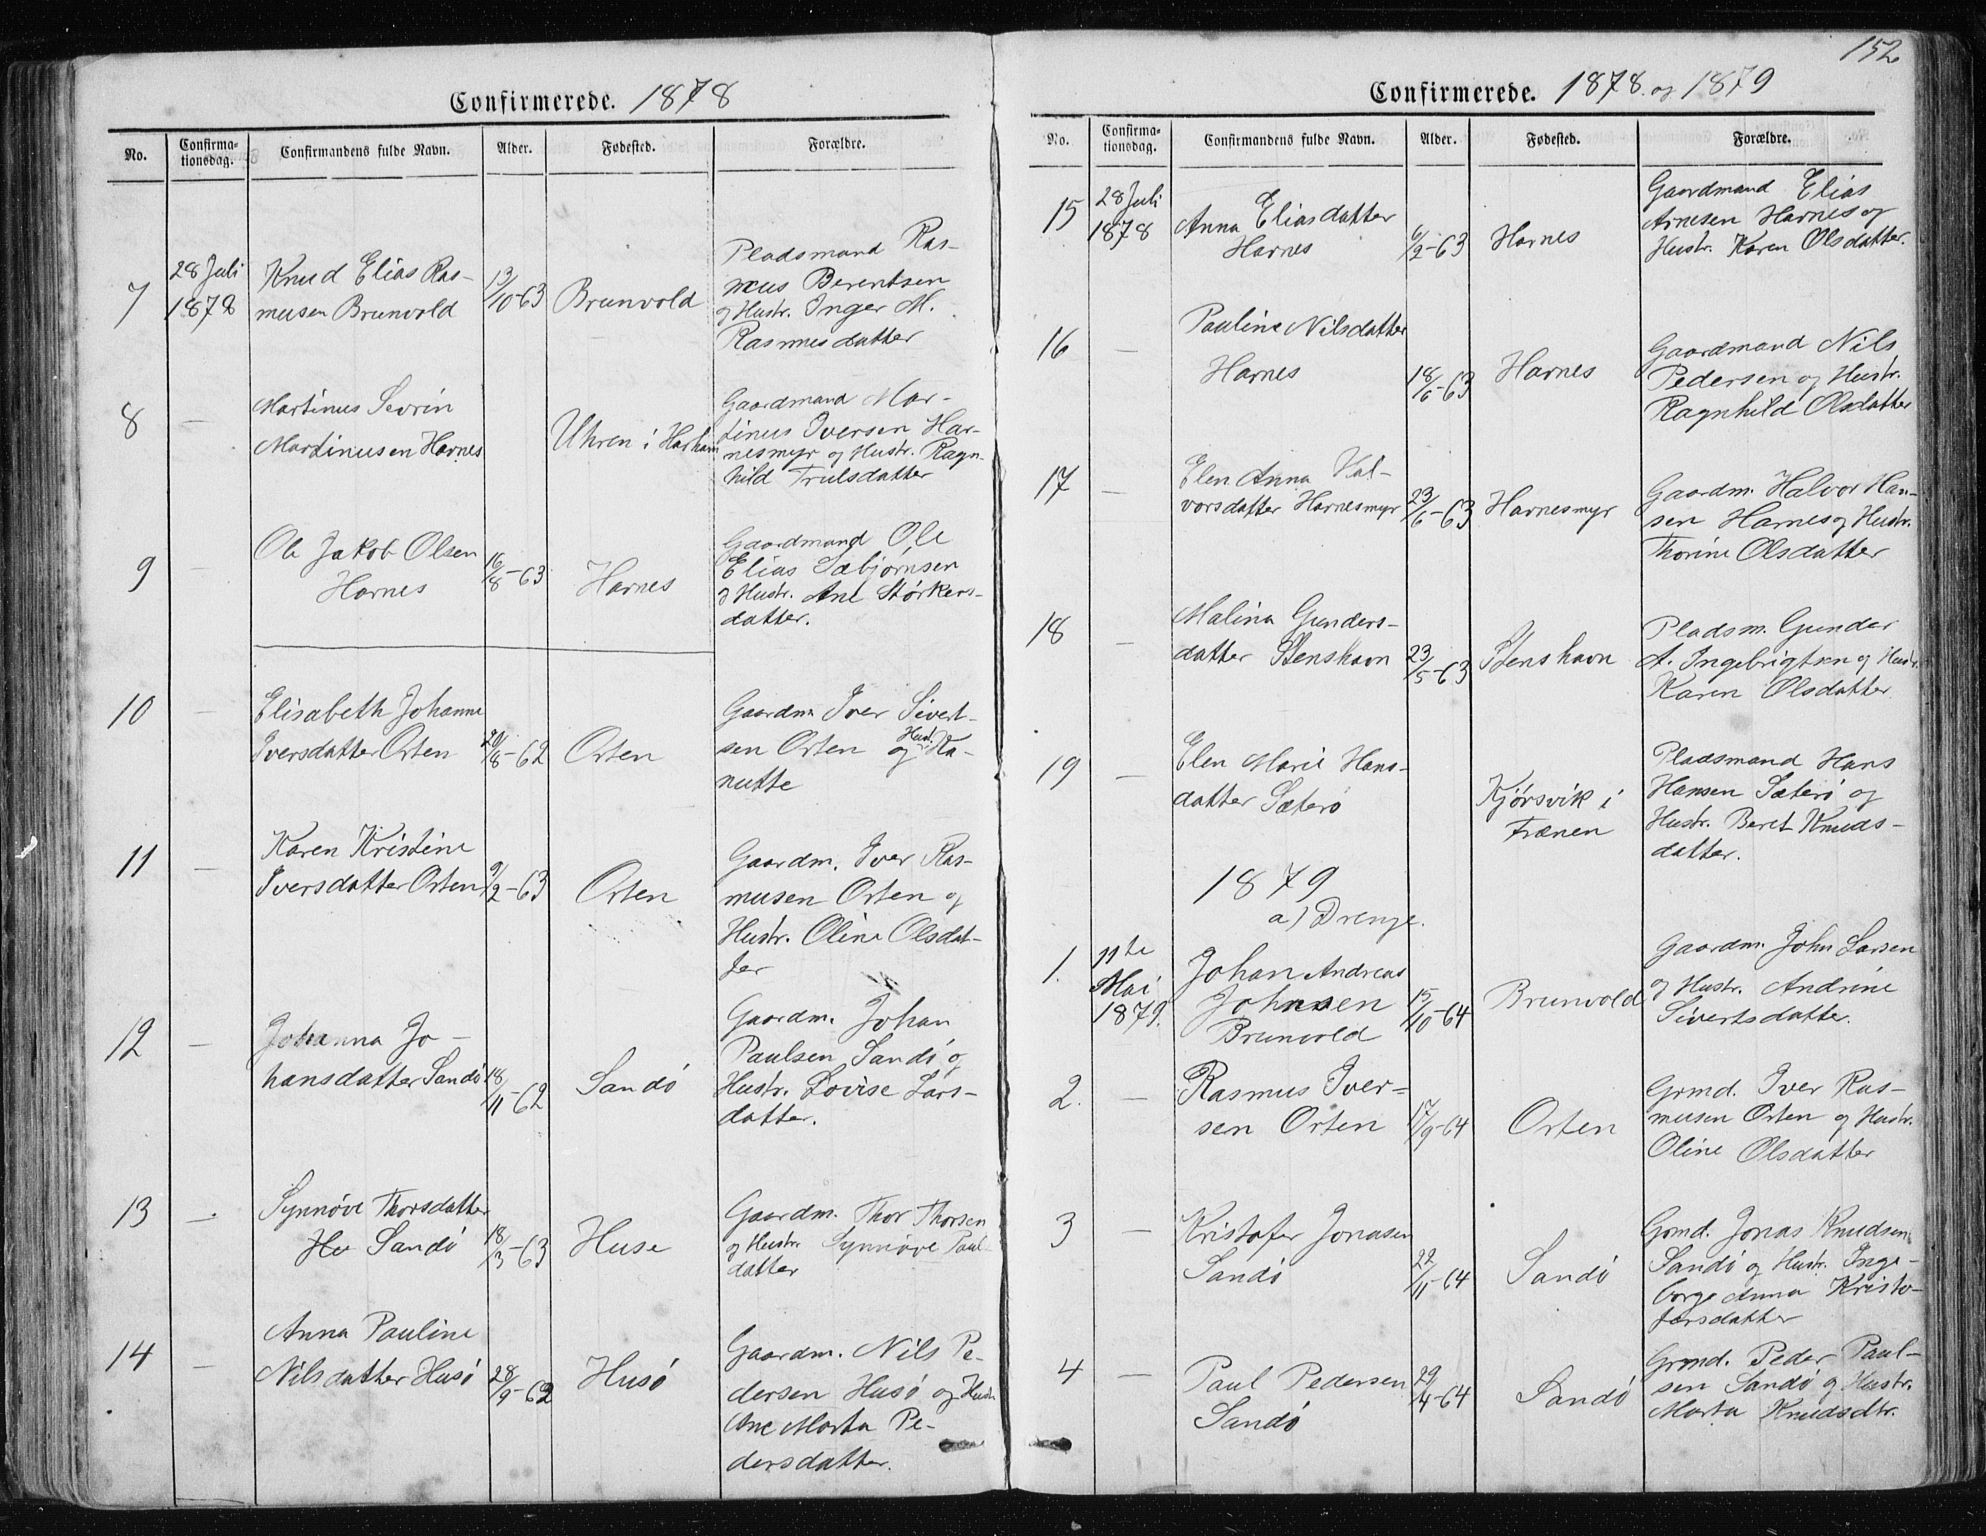 Confirmerede. 1878
No. Confirma-tionsdag. Confirmandens fulde Navn. Alder. Fødested. Forældre.
7 28 Juli 1878 Knud Elias Ras-
musen Brunvold 13/10-63 Brunvold Pladsmand Ras-
mus Berentsen
og Hustr. Inger M.
Rasmusdatter
8 — Martinus Sevrin
Martinusen Harnes Uhren i Harham Gaardmand Mar-
tinus Iversen Har-
nesmyr og Hustr. Ragn-
hild Trulsdatter
9 — Ole Jakob Olsen
Harnes 16/8-63 Harnes Gaardmand Ole
Elias Sæbjørnsen
og Hustr. Ane Størkers-
datter.
10 — Elisabeth Johanne
Iversdatter Orten 20/8-62 Orten Gaardm Iver Sivert-
sen Orten og Hust. Ka-
nutte
11 — Karen Kristine
Iversdatter Orten 9/2-63 Orten Gaardm. Iver Ras-
musen Orten og
Hustr. Oline Olsdat-
ter
12 — Johanna Jo-
hansdatter Sandø 18/11-62 Sandø Gaardm. Johan
Paulsen Sandø og
Hustr. Lovise Lars-
datter.
13 — Synnøve Thorsdatter
Sandø 18/3-63 Huse Gaardm. Thor Thorsen
og Hustr Synnøve Paul-
datter
14 — Anna Pauline
Nilsdatter Husø 28/9-62 Husø Gaardm. Nils Pe-
dersen Husø og Hustr.
Ane Marta Pe-
dersdatter.
152
Confirmerede. 1878. og 1879
No. Confirma-tionsdag. Confirmandens fulde Navn. Alder. Fødested. Forældre.
15 28 Juli 1878 Anna Eliasdatter
Harnes 6/2-63 Harnes Gaardmand Elias
Arnesen Harnes og
Hustr. Karen Olsdatter.
16 — Pauline Nilsdatter
Harnes 18/6-63 Harnes Gaardmand Nils
Pedersen og Hustr.
Ragnhild Olsdatter
17 — Elen Anna Hal-
vorsdatter Harnesmyr 23/6-63 Harnesmyr Gaardm. Halvor Han-
sen Harnes og Hustr.
Thorine Olsdatter
18 — Malina Gunders-
datter Stenshavn 23/5-63 Stenshavn Pladsm. Gunder
A. Ingebrigtsen og Hustr.
Karen Olsdatter
19 — Elen Marie Hans-
datter Sæterø Kjørsvik i
Frænen Pladsmand Hans
Hansen Sæterø og
Hustr. Beret Knuds-
datter.
1879
a) Drenge.
1. 11te Mai 1879. Johan Andreas
Johnsen
Brunvold 15/10-64 Brunvold Gaardm. John Larsen
og Hustr. Andrine
Sivertsdatter.
2. — Rasmus Iver-
sen Orten 17/9-64 Orten Grmd. Iver Ras-
musen Orten og Hustr.
Oline Olsdatter
3 — Kristofer Jonasen
Sandø 22/11-64 Sandø Grmd. Jonas Knudsen
Sandø og Hustr. Inge-
borge Anna Kristo-
fersdatter
4 — Paul Pedersen
Sandø 29/4-64 Sandø Grmd. Peder Paul-
sen Sandø og Hustr.
Marta Knudsdtr.